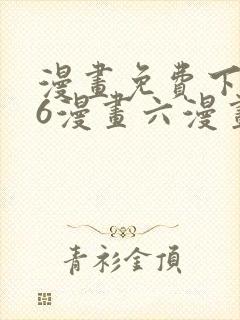 漫畫免費下
6漫畫六漫畫
青衫金頂